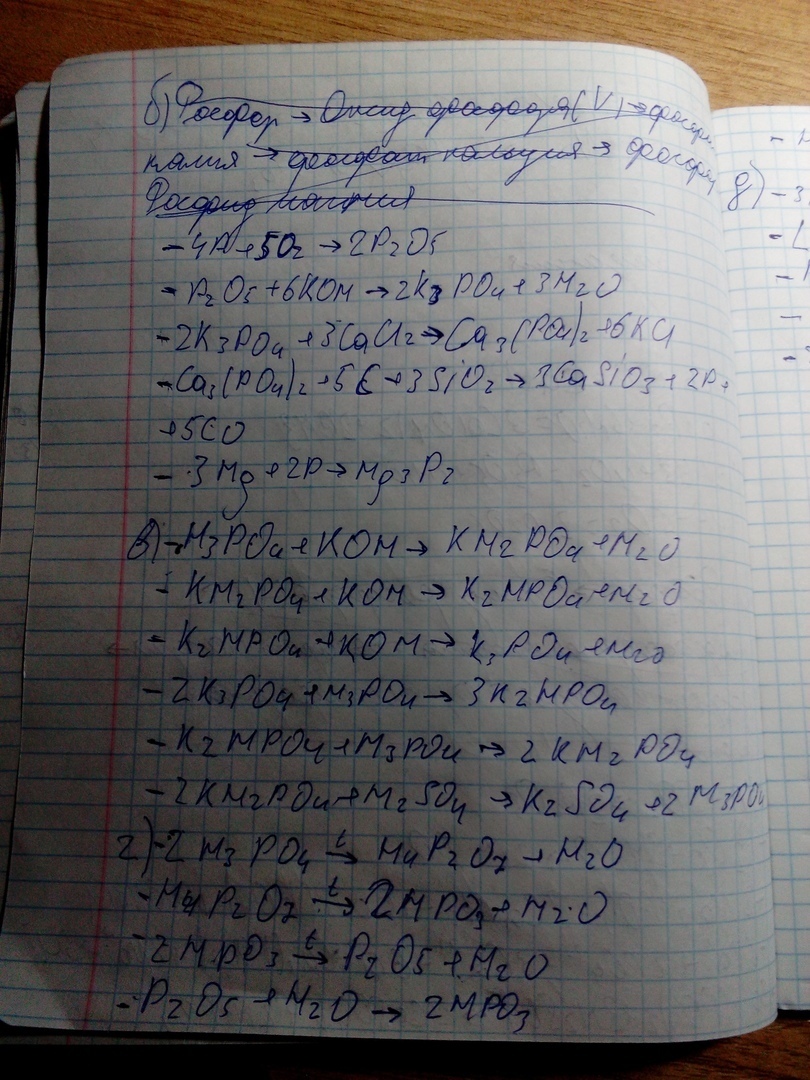 б) Фосфор → Оксид фосфора (V) → фосфат
калия → фосфат кальция → фосфор
Фосфид магния
- 4P + 5O2 → 2P2O5
- P2O5 + 6KOH → 2K3PO4 + 3H2O
- 2K3PO4 + 3CaCl2 → Ca3(PO4)2 + 6KCl
- Ca3(PO4)2 + 5C + 3SiO2 → 3CaSiO3 + 2P +
+ 5CO
- 3Mg + 2P → Mg3P2
в) - H3PO4 + KOH → KH2PO4 + H2O
- KH2PO4 + KOH → K2HPO4 + H2O
- K2HPO4 + KOH → K3PO4 + H2O
- 2K3PO4 + H3PO4 → 3K2HPO4
- K2HPO4 + H3PO4 → 2KH2PO4
- 2KH2PO4 + H2SO4 → K2SO4 + 2H3PO4
г) - 2H3PO4 t→ H4P2O7 + H2O
- H4P2O7 t→ 2HPO3 + H2O
- 2HPO3 t→ P2O5 + H2O
- P2O5 + H2O → 2HPO3
д) - 3